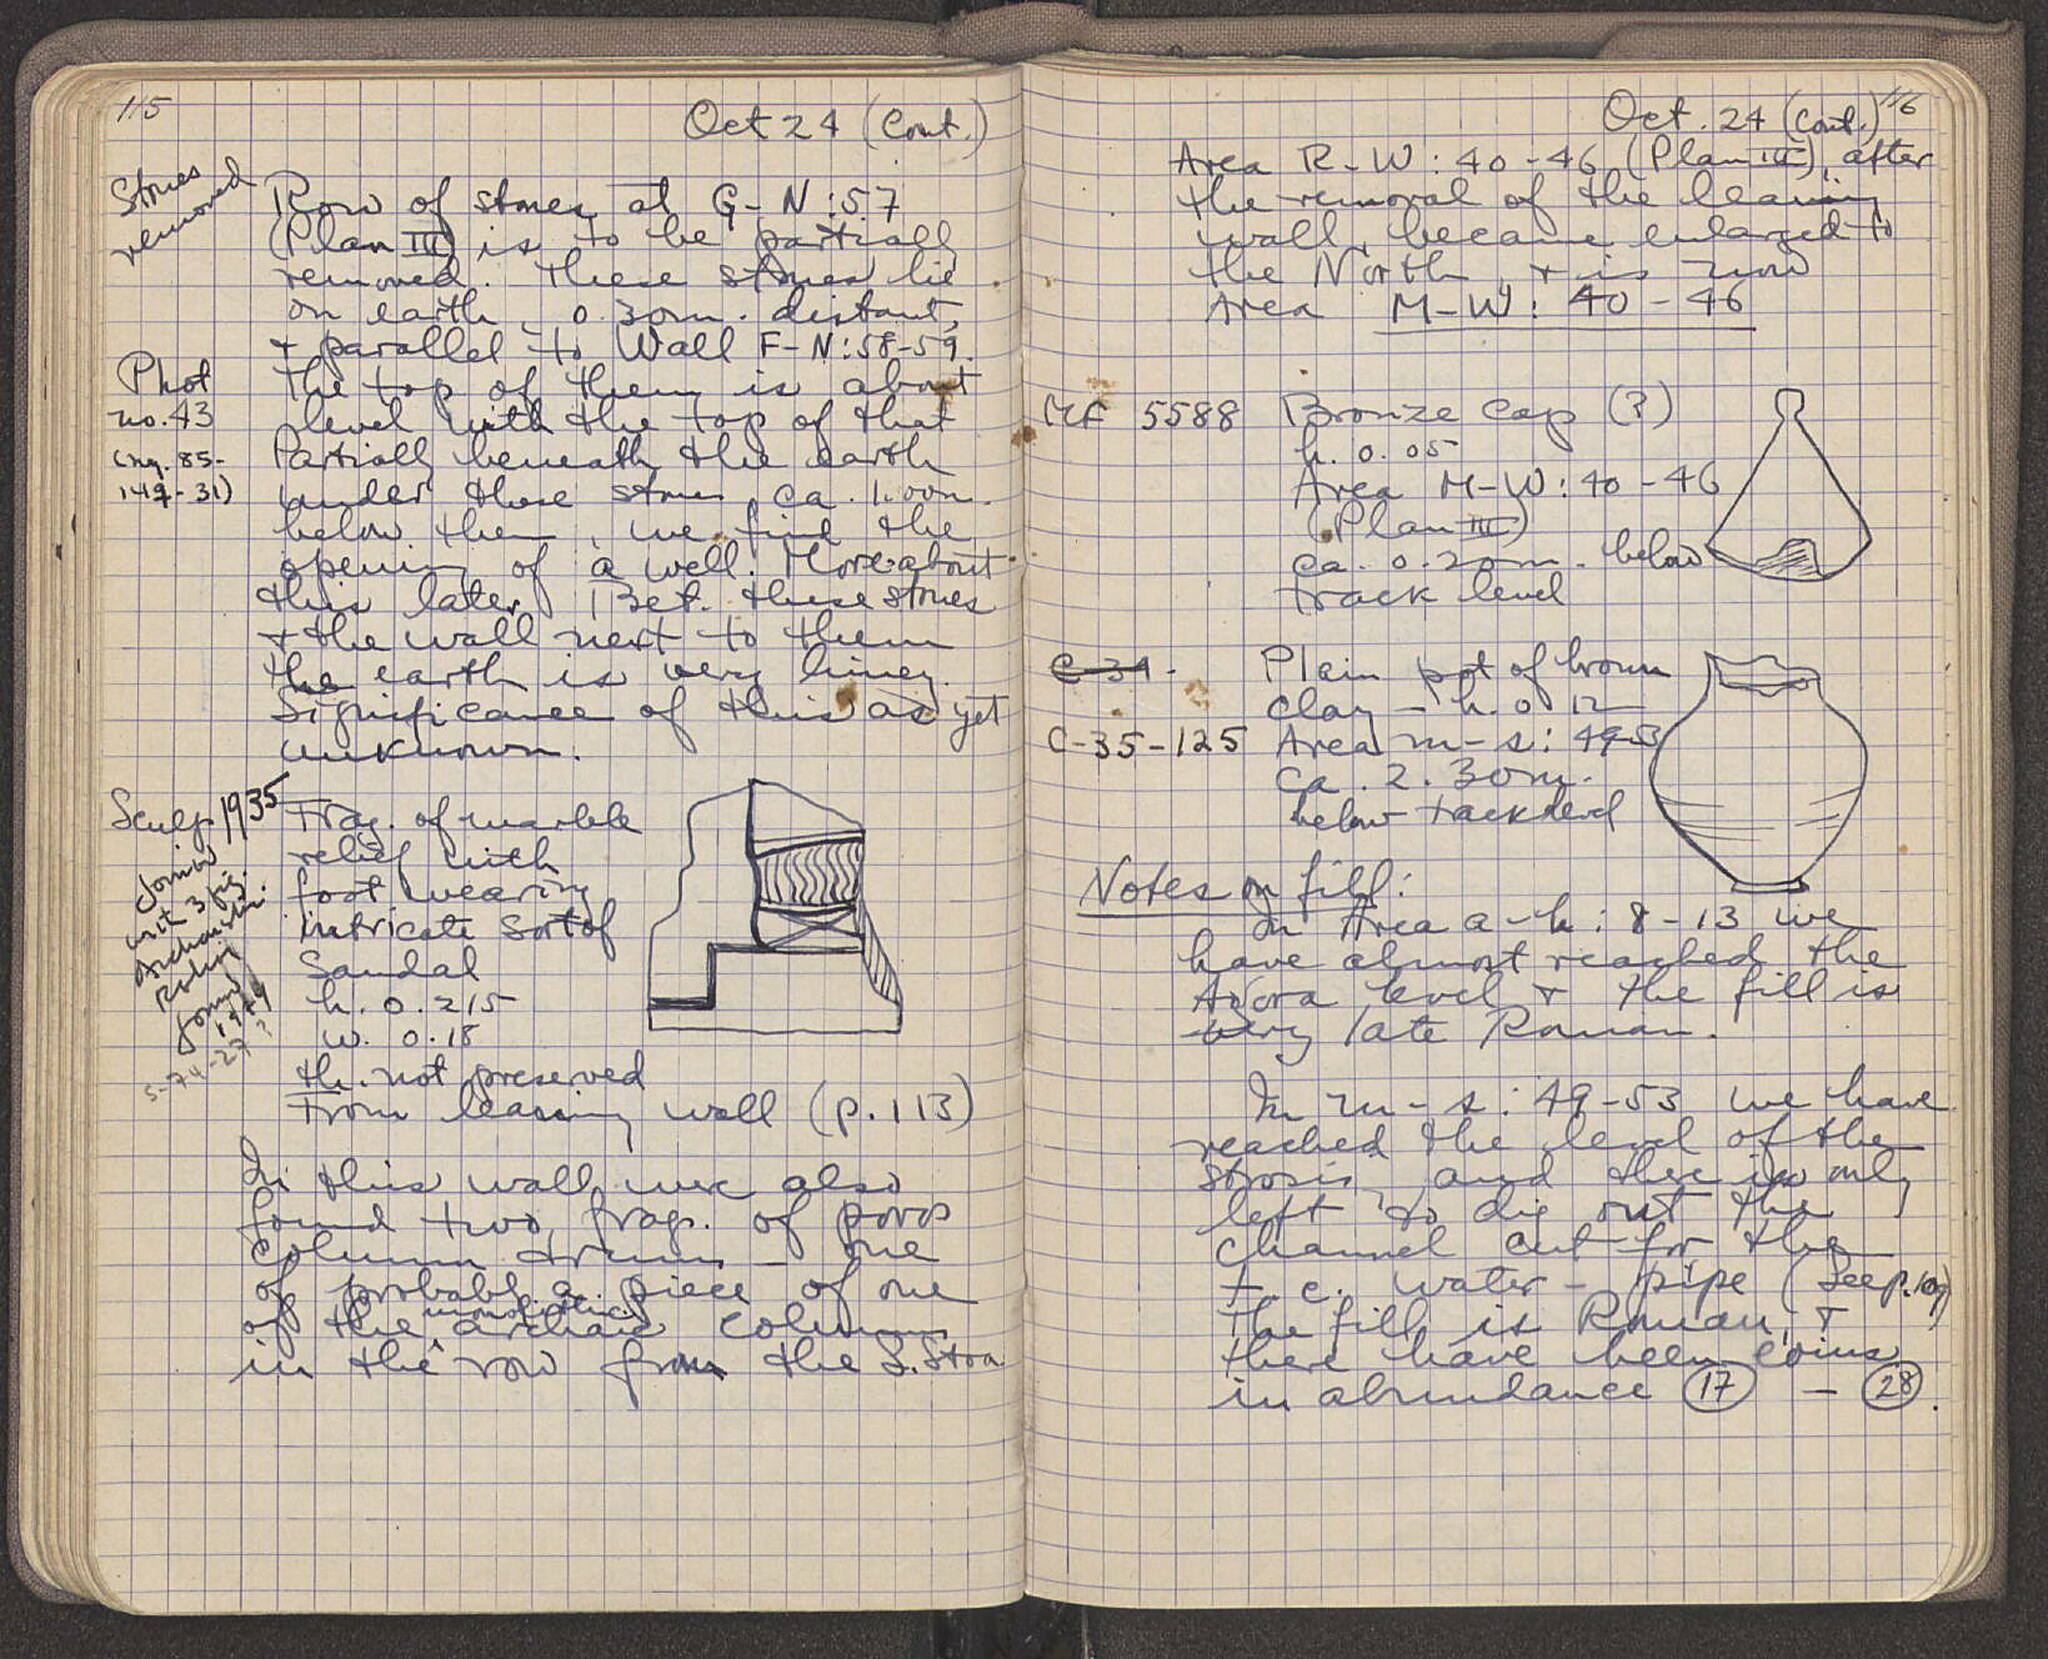 115
Oct 24 (Cont.)
Stones
removed
Row of stones at G-N:57
(Plan III) is to be partially
removed. These stones lie
on earth, 0.30m. distant,
+ parallel to Wall F-N:58-59.
Phot
no. 43
(ng. 85-
149-31)
The top of them is about
level with the top of that
Partially beneath the earth
under these stones, ca. 1.00m.
below them, we find the
opening of a well. More about
this later. Bet. these stones
+ the wall next to them
the earth is very limey.
Significance of this as yet
unknown.
Sculp 1935
Joins
with 3 fig.
Archaistic
Relief
found
1974
S-74-27?
Frag. of marble
relief with
foot wearing
intricate sort of
Sandal
h. 0.215
w. 0.18
th. not preserved
From leaning wall (p. 113)
In this wall we also
found two frag. of poros
column drums - one
of probably a piece of one
of the monolithic archaic columns
in the row from the S. Stoa
116
Oct. 24 (Cont.)
Area R-W: 40-46 (Plan III), after
the removal of the leaning
wall, became enlarged to
the North, + is now
Area M-W: 40-46
MF 5588 Bronze cap (?)
h. 0.05
Area M-W: 40-46
(Plan III)
ca. 0.20m. below
track level
C-34-
C-35-125
Plain pot of brown
clay - h. 0.12
Area m-s: 49-53
ca. 2.30m.
below track level
Notes on fill:
In Area a-h: 8-13 we
have almost reached the
Agora level + the fill is
very late Roman.
In m-s: 49-53 we have
reached the level of the
strosis, and there is only
left to dig out the
channel cut for the
t.c. water-pipe (See p. 109)
The fill is Roman, +
there have been coins
in abundance 17 - 28.